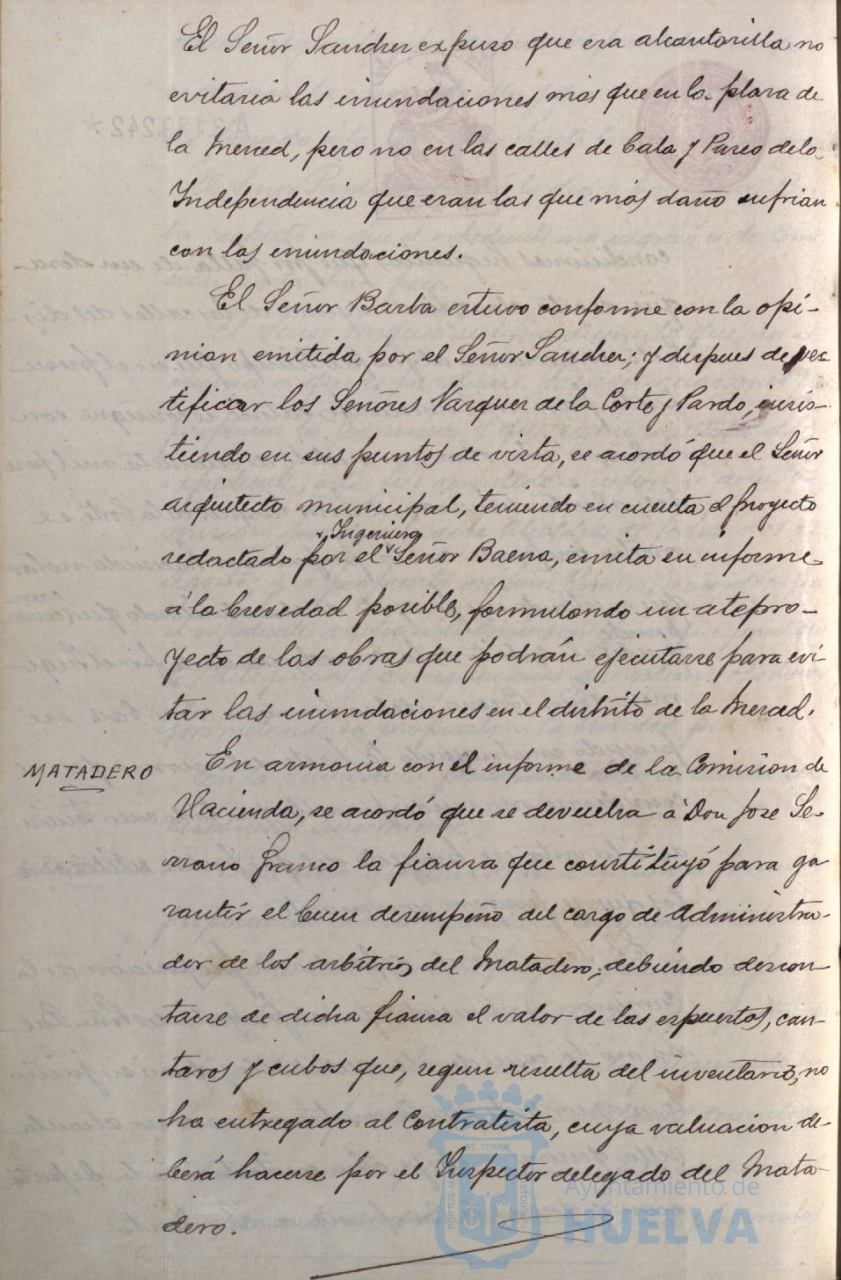 El Señor Sanchez expuso que esa alcantarilla no
evitaria las inundaciones mas que en la plaza de
la Merced, pero no en las calles de Cala y Paseo de la
Independencia que eran las que más daño sufrian
con las inundaciones.
El Señor Barba estuvo conforme con la opi-
nion emitida por el Señor Sanchez; y despues de rec
tificar los Señores Vazquez de la Corte y Pardo, insis-
tiendo en sus puntos de vista, se acordó que el Señor
arquitecto municipal, teniendo en cuenta el proyecto
Ingeniero
redactado por el Señor Baena, emita su informe
á la brevedad posible, formulando un atepro-
yecto de las obras que podrán ejecutarse para evi
tar las inundaciones en el distrito de la Merced.
MATADERO
En armonia con el informe de la Comision de
Hacienda, se acordó que se devuelva á Don Jose Se-
rrano Franco la fianza que constituyó para ga
rantir el buen desempeño del cargo de Administra-
dor de los arbitrios del Matadero, debiendo descon
tarse de dicha fianza el valor de las espuertas, can-
taros y cubos que, segun resulta del inventario, no
ha entregado al Contratista, cuya valuacion de-
berá hacerse por el Inspector delegado del Mata-
dero.
Ayuntamiento de
HUELVA